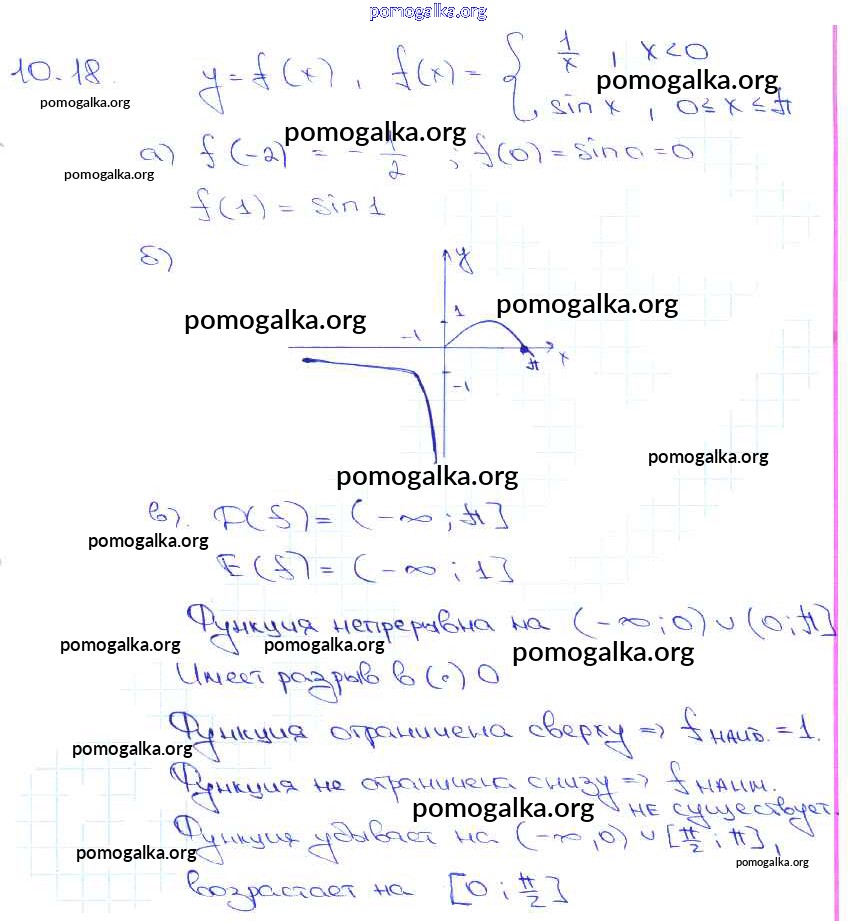 pomogalka.org
10.18. y = f(x), f(x) = { 1/x, x<0
pomogalka.org
sin x, 0 ≤ x ≤ π
pomogalka.org
pomogalka.org
а) f(-2) = -1/2; f(0) = sin 0 = 0
pomogalka.org
f(1) = sin 1
б)
y
pomogalka.org
1
pomogalka.org
-1
π x
-1
pomogalka.org
pomogalka.org
в). D(f) = (-∞; π]
pomogalka.org
E(f) = (-∞; 1]
Функция непрерывна на (-∞; 0) ∪ (0; π]
pomogalka.org pomogalka.org pomogalka.org
Имеет разрыв в (•) 0
Функция ограничена сверху => fнаиб. = 1.
pomogalka.org
Функция не ограничена снизу => fнаим.
pomogalka.org
не существует.
Функция убывает на (-∞, 0) ∪ [π/2; π],
pomogalka.org
pomogalka.org
возрастает на [0; π/2]